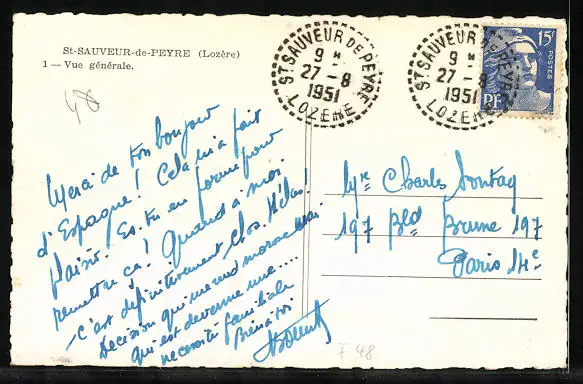 St-SAUVEUR-de-PEYRE (Lozère)
1 — Vue générale.
48
Merci de ton bonjour
d'Espagne ! Cela m'a fait
plaisir. Es-tu en forme pour
remettre ça ! Quand à moi.
c'est définitivement clos. Hélas !
Décision qui me rend morose mais
qui est devenue une....
nécessité familiale
Bien à toi
ST SAUVEUR DE PEYRE
9 H
27-8
1951
LOZERE
ST SAUVEUR DE PEYRE
9 H
27-8
1951
LOZERE
15F
POSTES
RF
Charles Sontag
197 Bld Brune 197
Paris 14e
F 48